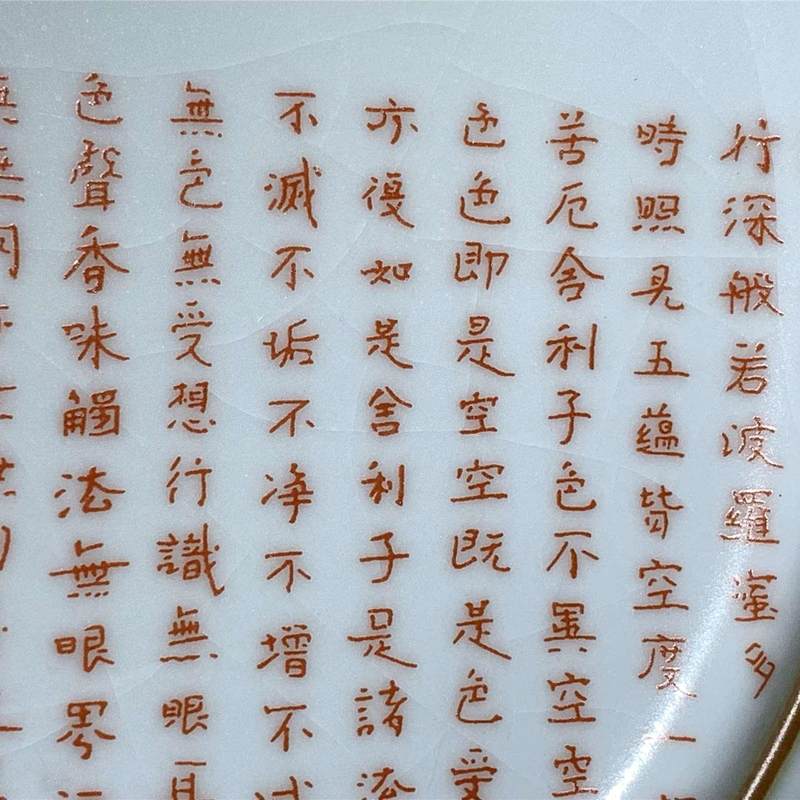 行深般若波羅蜜多
時照見五蘊皆空度一
苦厄舍利子色不異空空
色色即是空空既是色受
亦復如是舍利子是諸法
不滅不垢不净不增不
無色無受想行識無眼耳
色聲香味觸法無眼界